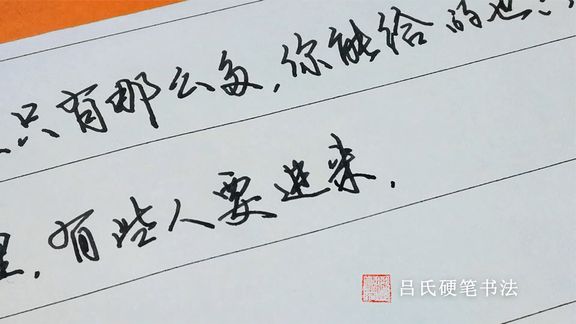 只有那么多,你能给的也
,有些人要进来.
吕氏硬笔书法